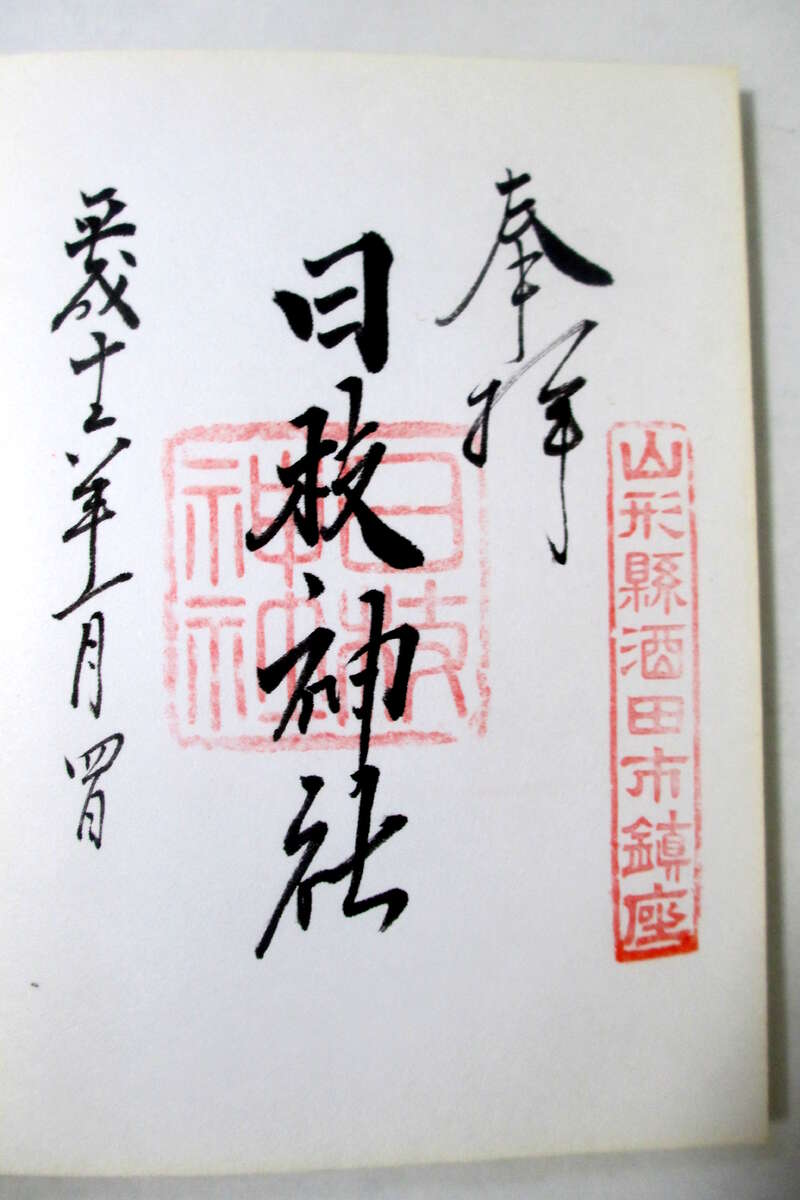 山形縣酒田市鎮座
奉拝
日枝神社
日枝
神社
平成十六年一月四日